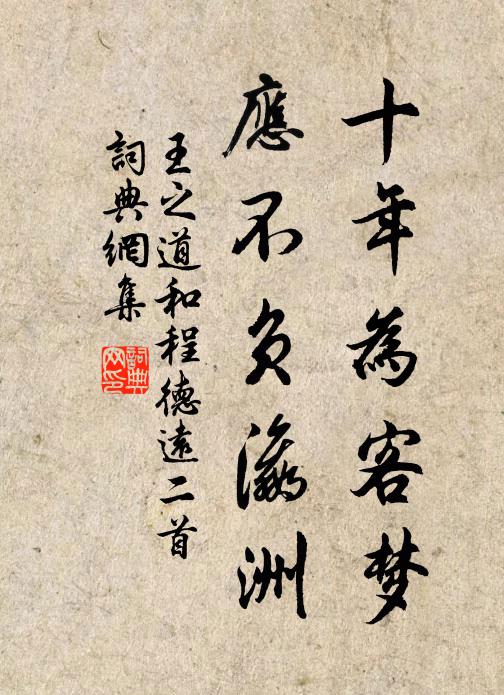 十年為客梦
應不负瀛洲
王之道和程德遠二首
詞典網集
詞典网印